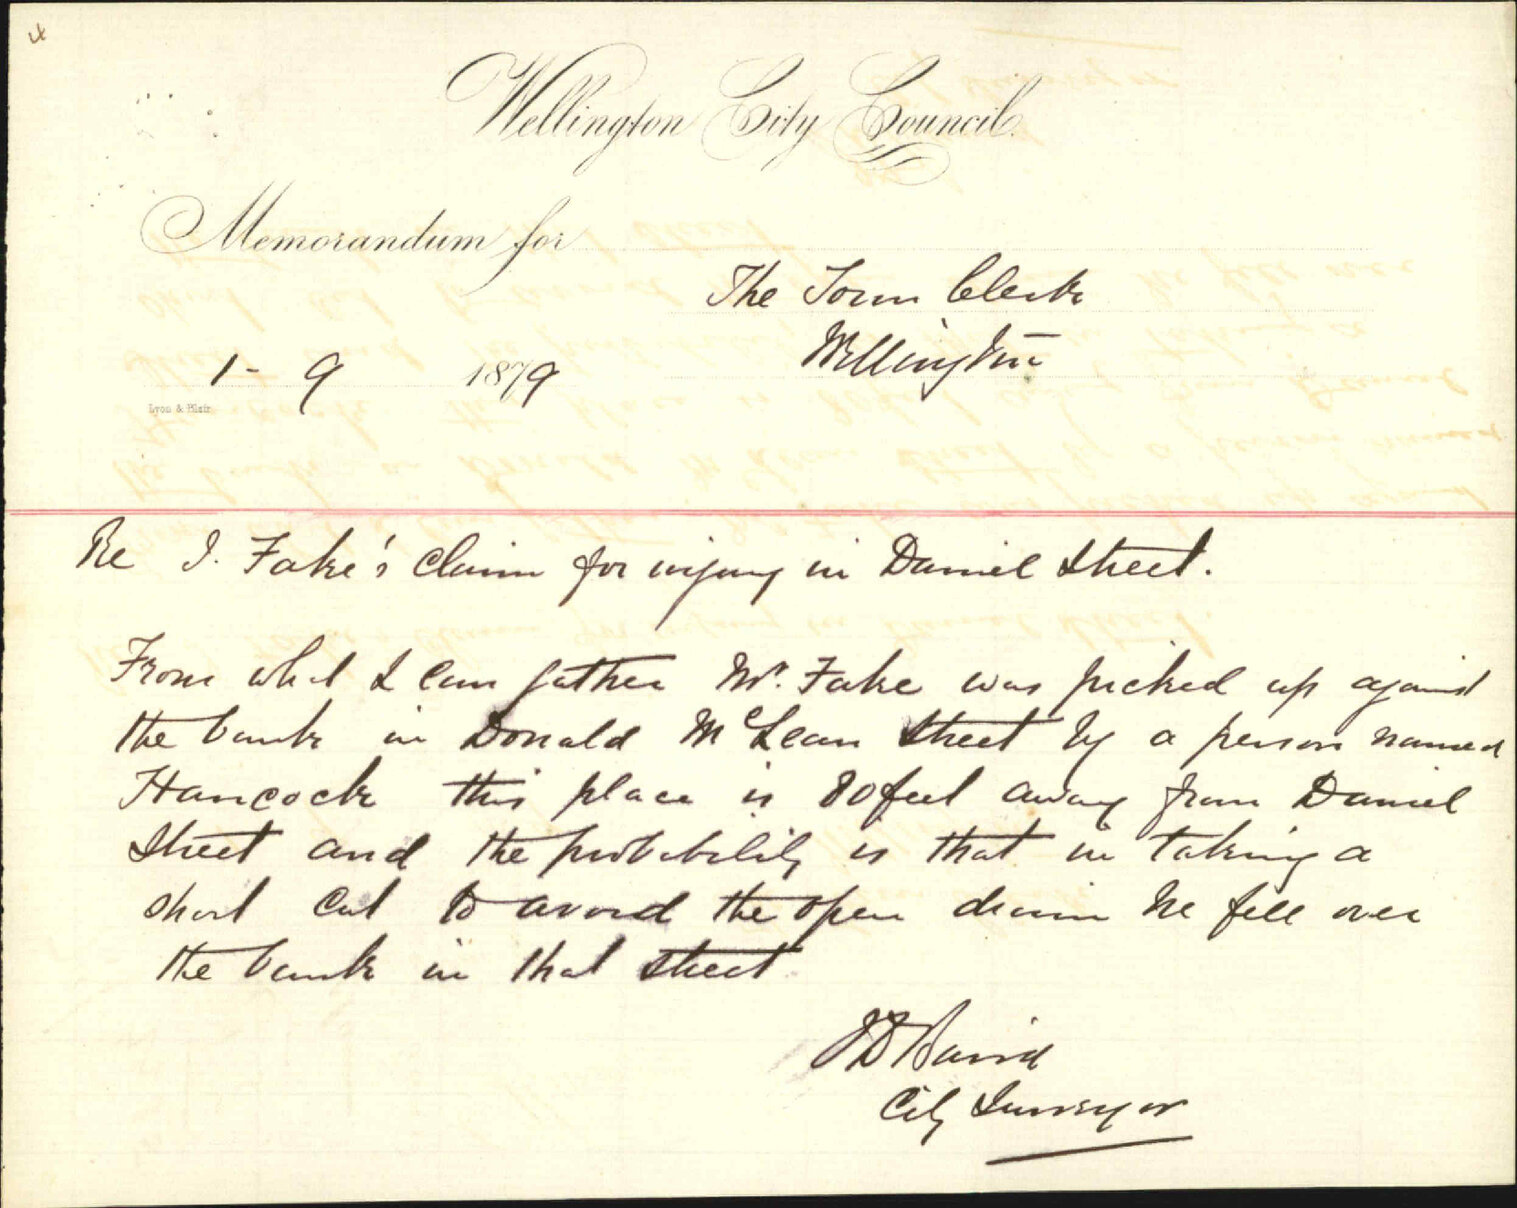 Wellington City Council.
Memorandum for
The Town Clerk
Wellington
1 - 9 1879
Lyon & Blair
Re I. Fake's claim for injury in Daniel Street.
From what I can gather Mr. Fake was picked up against
the bank in Donald McLean Street by a person named
Hancock this place is 80 feet away from Daniel
Street and the probability is that in taking a
short cut to avoid the open drain he fell over
the bank in that street
JD Baird
City Surveyor